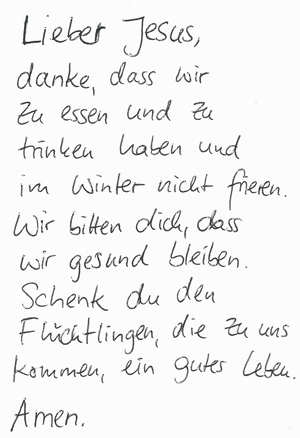 Lieber Jesus,
danke, dass wir
zu essen und zu
trinken haben und
im Winter nicht frieren.
Wir bitten dich, dass
wir gesund bleiben.
Schenk du den
Flüchtlingen, die zu uns
kommen, ein gutes Leben.
Amen.